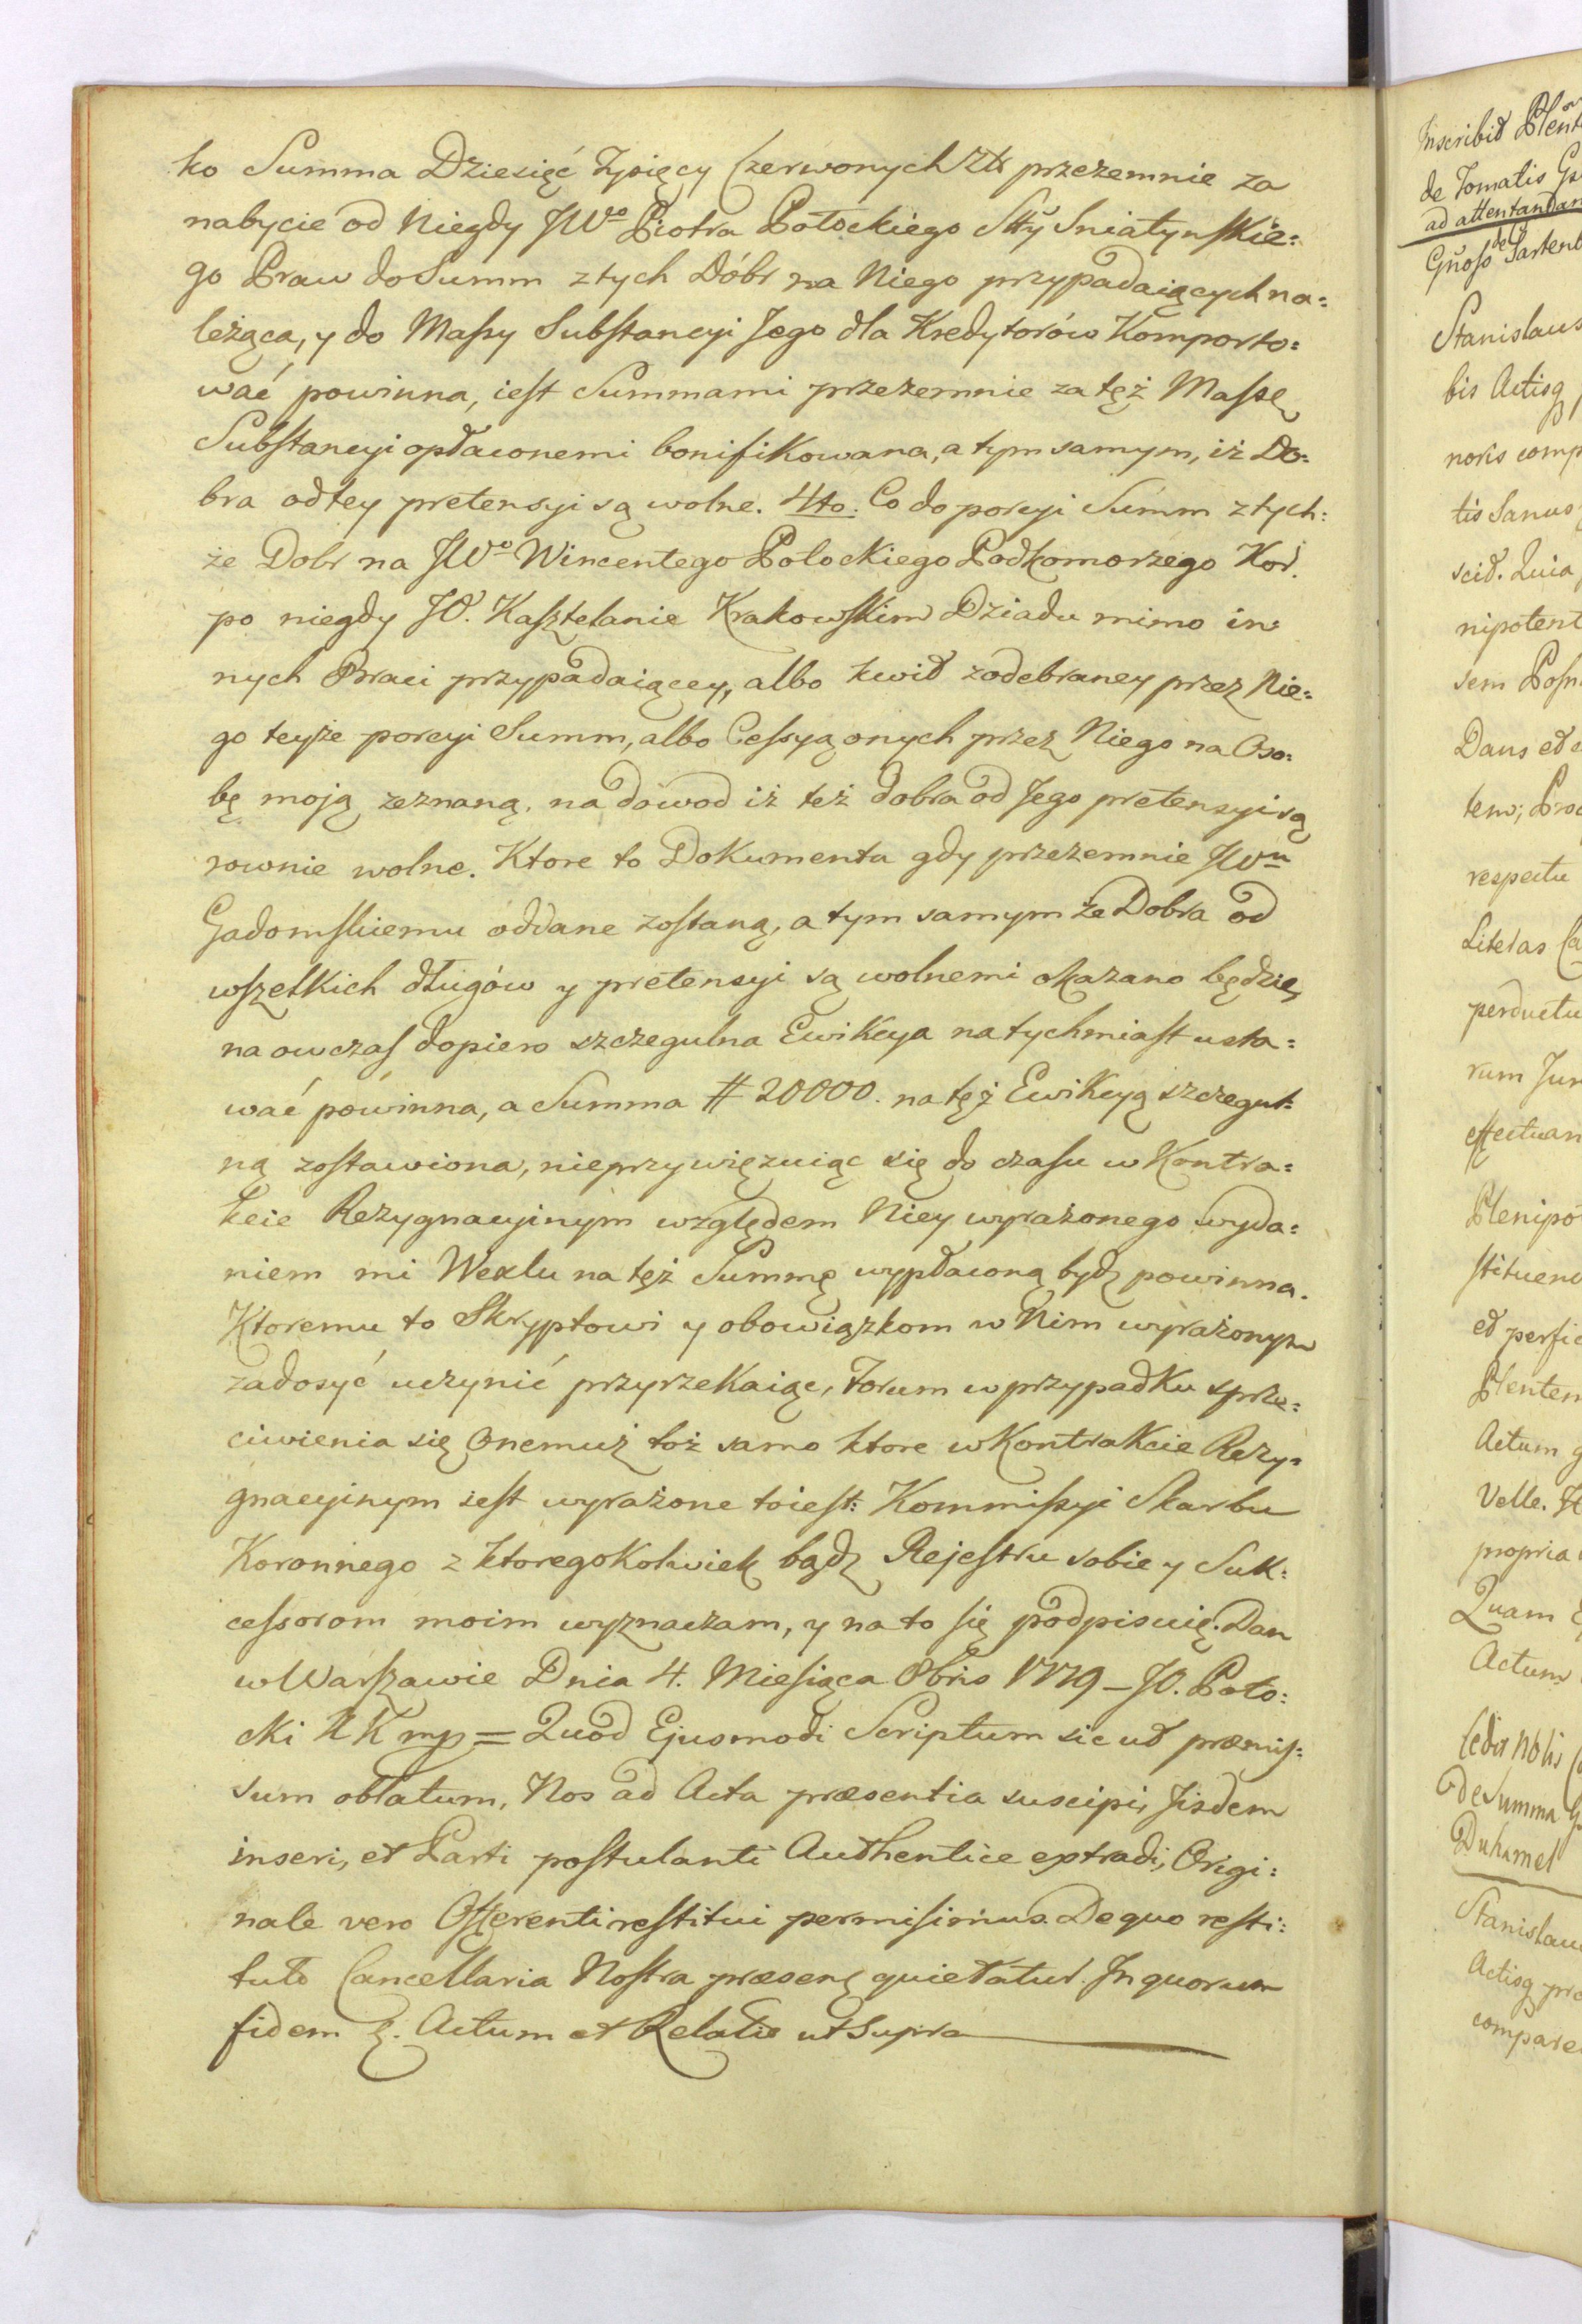 ko Summa Dziesięć Tysięcy Czerwonych Złł przezemnie za
nabycie od Niegdy JWo Piotra Potockiego Stty Sniatynskie:
go Praw do Summ z tych Dóbr na Niego przypadaiących na:
leżąca, y do Massy Substancyi Jego dla Kredytorów Komporto:
wać powinna, iest Summami przezemnie za tęż Massę
Substancyi opłaconemi bonifikowana, a tym samym, iż Do:
bra od tey pretensyi są wolne. 4to. Co do porcyi Summ z tych:
że Dobr na JWo Wincentego Potockiego Podkomorzego Kor.
po niegdy JO. Kasztelanie Krakowskim Dziadu mimo in:
nych Braci przypadaiącey, albo kwit z odebraney przez Nie:
go teyże porcyi Summ, albo Cessyą onych przez Niego na Oso:
bę moją zeznaną, na dowod iż też dobra od Jego pretensyi są
rownie wolne. Ktore to Dokumenta gdy przezemnie JWu
Gadomskiemu oddane zostaną, a tym samym że Dobra od
wszelkich długów y pretensyi są wolnemi okazano będzie,
na owczas dopiero szczegulna Ewikcya natychmiast usta:
wać powinna, a Summa # 20000. na tęż Ewikcyą szczegul:
ną zostawiona, nieprzywięzuiąc się do czasu w Kontra:
kcie Rezygnacyinym względem Niey wyrażonego wyda:
niem mi Wexlu na tęż Summę wypłaconą bydz powinna.
Ktoremu to Skryptowi y obowiązkom w Nim wyrażonym
zadosyć uczynić przyrzekaiąc, Forum w przypadku sprze:
ciwienia się Onemuż toż samo ktore w Kontrakcie Rezy:
gnacyinym iest wyrażone toiest: Kommissyi Skarbu
Koronnego z ktoregokolwiek bądz Rejestru sobie y Suk:
cessorom moim wyznaczam, y na to się podpisuię. Dan
w Warszawie Dnia 4. Miesiąca 8bris 1779 – JO. Poto:
cki KK mp = Quod Ejusmodi Scriptum sic ut præmis:
sum oblatum, Nos ad Acta præsentia suscipi, Jisdem
inseri, et Parti postulanti Authentice extradi, Origi:
nale vero Offerenti restitui permisimus. De quo resti:
tuto Cancellaria Nostra præsens quietatur. In quorum
fidem &. Actum et Relatio ut supra
Inscribit
de Tomatis
ad attentandam
Stanislaus
bis Actisq
noris comp
tis Sanus
scit. Quia
nipotent
sem Posn
Dans et
tem, Proc
respectu
Literas Ca
perductu
rum Jur
effectuan
Plenipo
stituen
et perfic
Plenten
Actum
Velle.
propria
Quam
Actum
Cedit Nobis
de Summa
Duhamel
Stanislau
Actisq pra
compare